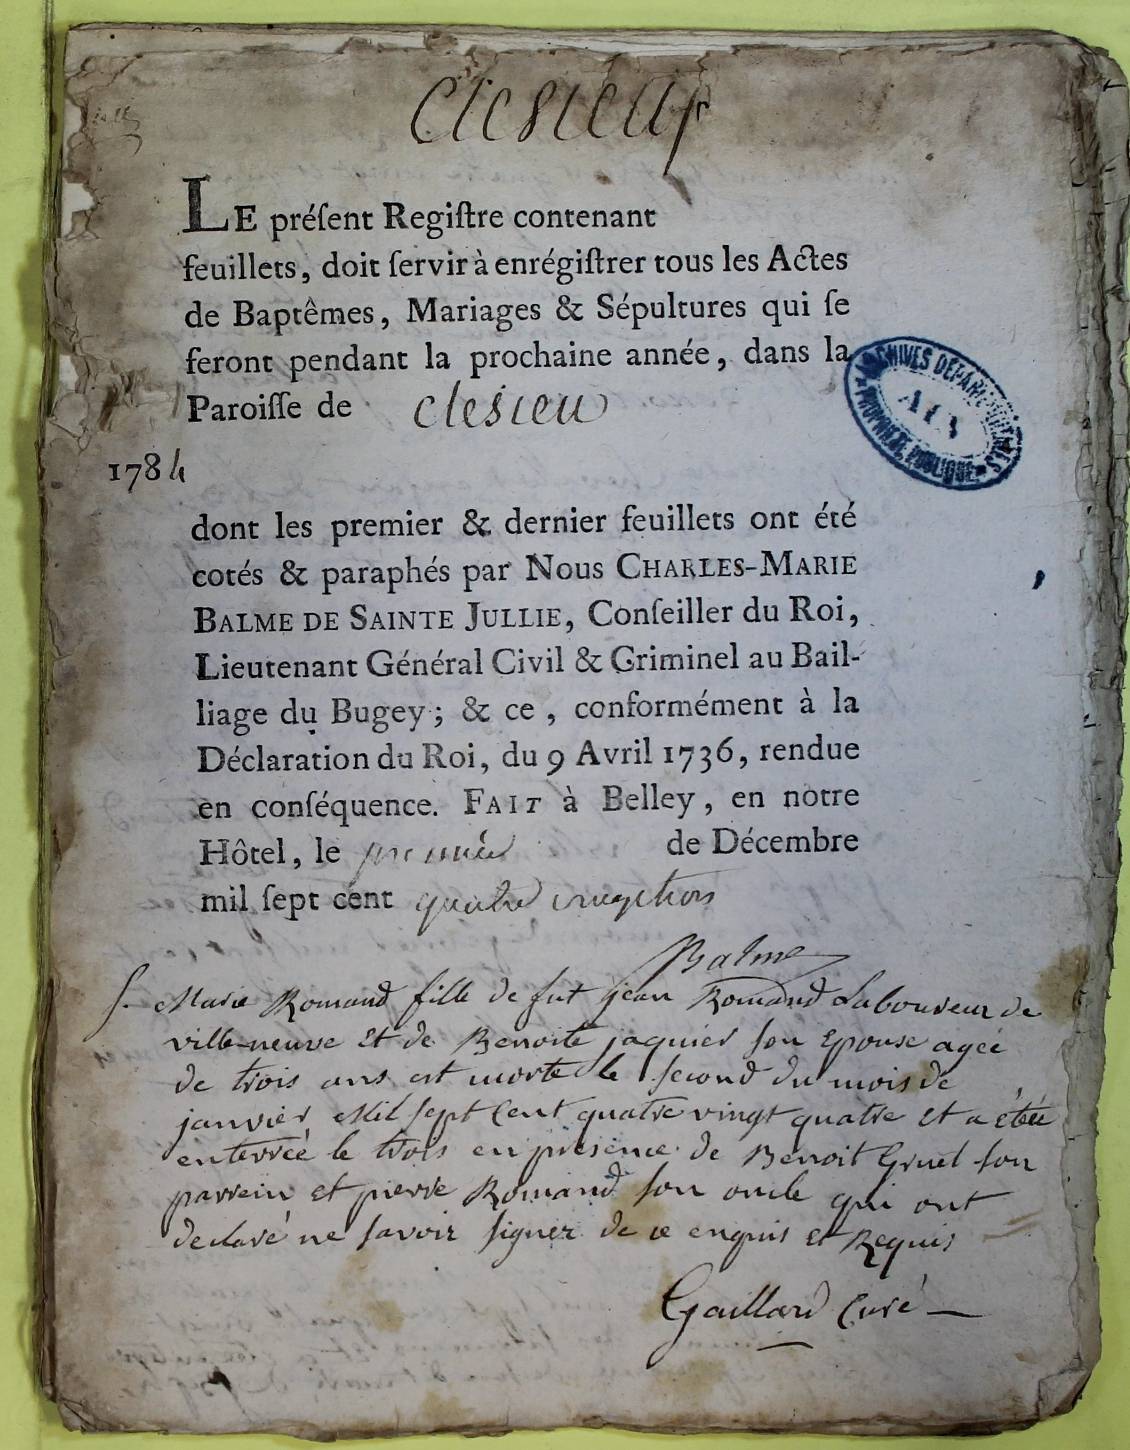 Clesieux
LE préſent Regiſtre contenant
feuillets, doit ſervir à enrégiſtrer tous les Actes
de Baptêmes, Mariages & Sépultures qui ſe
feront pendant la prochaine année, dans la
Paroiſſe de clesieu
ARCHIVES DÉPARTEMENTALES
AIN
PROPRIÉTÉ PUBLIQUE
1784
dont les premier & dernier feuillets ont été
cotés & paraphés par Nous CHARLES-MARIE
BALME DE SAINTE JULLIE, Conſeiller du Roi,
Lieutenant Général Civil & Criminel au Bail-
liage du Bugey; & ce, conformément à la
Déclaration du Roi, du 9 Avril 1736, rendue
en conſéquence. FAIT à Belley, en notre
Hôtel, le premier de Décembre
mil ſept cent quatre vingt trois
Balme
S. Marie Romand fille de fut jean Romand Laboureur de
ville-neuve Et de Benoite jaquier son Epouse agée
de trois ans est morte le second du mois de
janvier Mil sept Cent quatre vingt quatre Et a étée
enterrée le trois en presence de Benoit Gruel son
parrein et pierre Romand son oncle qui ont
declaré ne savoir signer de ce enquis et Requis
Gaillard Curé